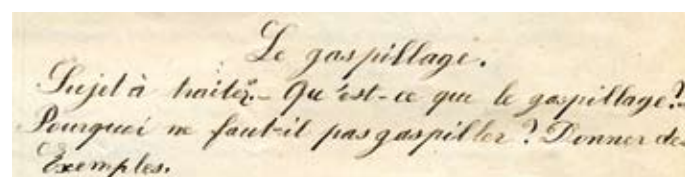 Le gaspillage.
Sujet à traiter.- Qu'est-ce que le gaspillage?-
Pourquoi ne faut-il pas gaspiller? Donner des
Exemples.